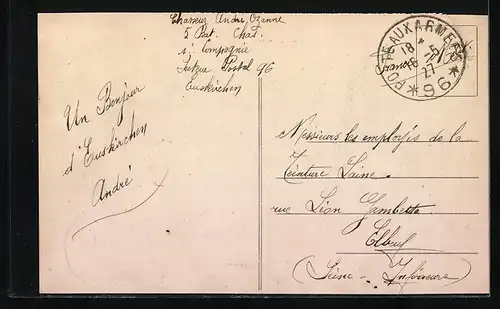 Chasseur André Ozanne
5 Bat. Chas.
1 Compagnie
Secteur Postal 96
Euskirchen
POSTE AUX ARMEES
18
27
*96*
Un Bonjour
d'Euskirchen
André
Messieurs les employés de la
Teinture Laine.
rue Léon Gambetta
Elbeuf
(Seine-Inférieure)